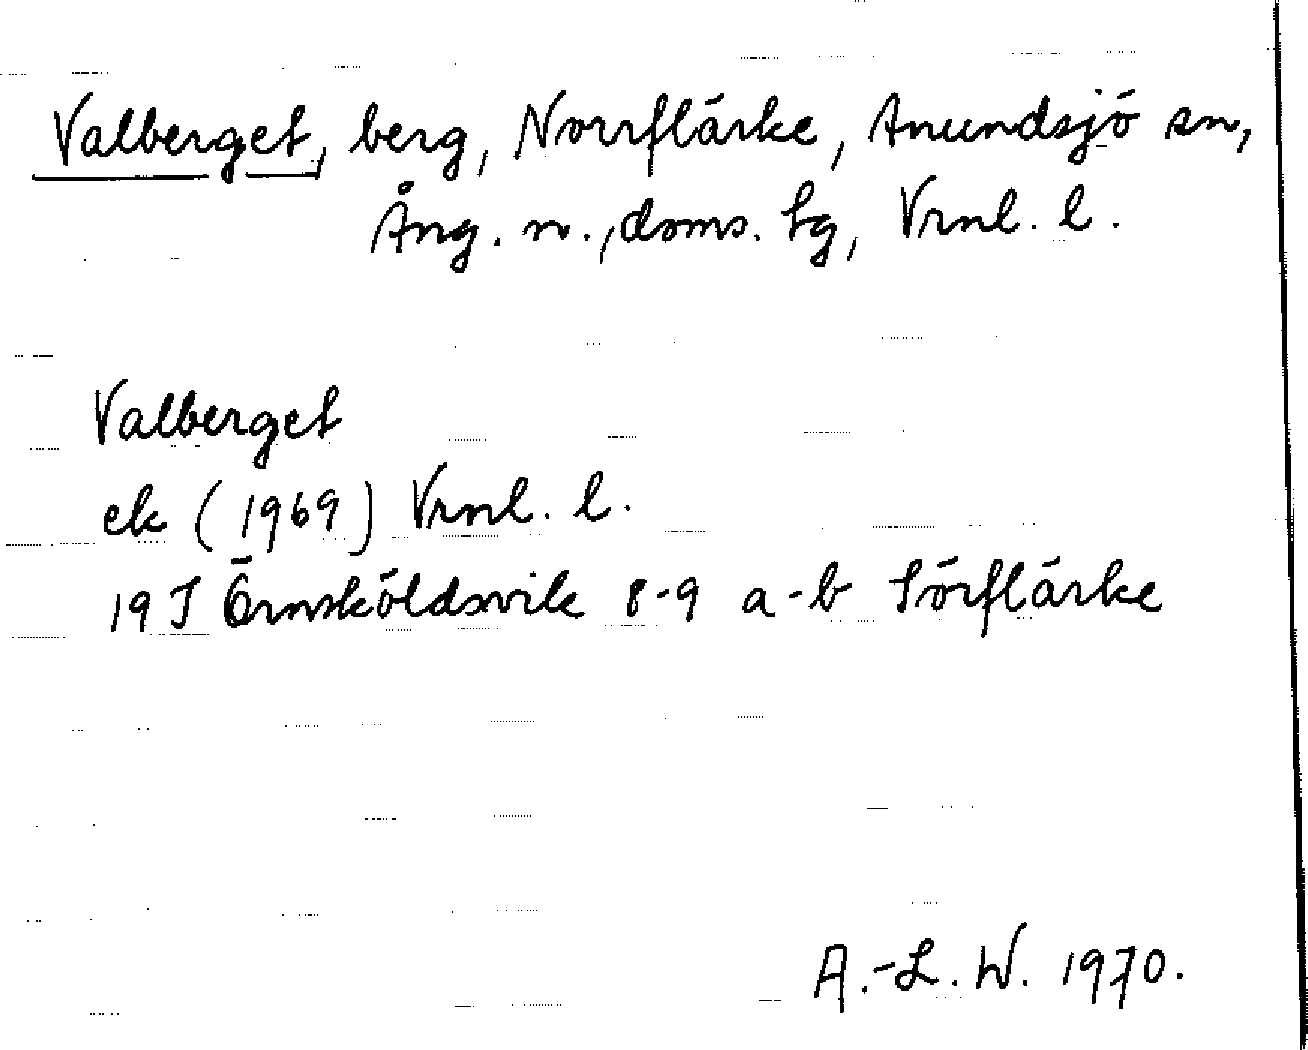 Valberget, berg, Norrflärke, Anundsjö sn,
Ång. n., doms. tg, Vrnl. l.
Valberget
ek (1969) Vrnl. l.
19 J Örnsköldsvik 8-9 a-b Sörflärke
A.-L. W. 1970.